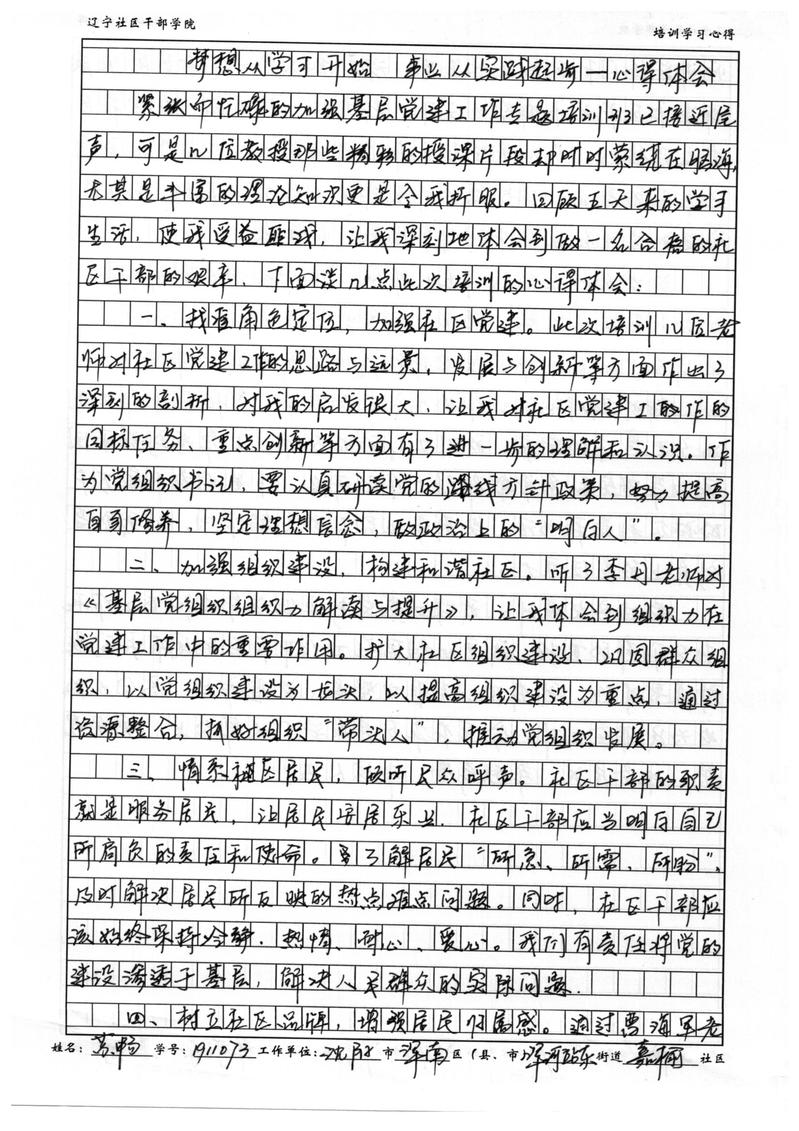 辽宁社区干部学院
培训学习心得
梦想从学习开始 事业从实践起步—心得体会
紧张而忙碌的加强基层党建工作专题培训班已接近尾
声，可是几位教授那些精彩的授课片段却时时萦绕在脑海，
尤其是丰富的理论知识更是令我折服。回顾五天来的学习
生活，使我受益匪浅，让我深刻地体会到做一名合格的社
区干部的艰辛，下面谈几点此次培训的心得体会：
一、找准角色定位，加强社区党建。此次培训几位老
师对社区党建工作的思路与远景，发展与创新等方面作出了
深刻的剖析，对我的启发很大，让我对社区党建工的作的
目标任务、重点创新等方面有了进一步的理解和认识。作
为党组织书记，要认真研读党的路线方针政策，努力提高
自身修养，坚定理想信念，做政治上的“明白人”。
二、加强组织建设，构建和谐社区。听了李丹老师对
《基层党组织组织力解读与提升》，让我体会到组织力在
党建工作中的重要作用。扩大社区组织建设、巩固群众组
织，以党组织建设为龙头，以提高组织建设为重点，通过
资源整合，抓好组织“带头人”，推动党组织发展。
三、情系社区居民，倾听民众呼声。社区干部的职责
就是服务居民，让居民安居乐业，社区干部应当明白自己
所肩负的责任和使命。要了解居民“所急、所需、所盼”，
及时解决居民所反映的热点难点问题。同时，社区干部应
该始终保持冷静、热情、耐心、爱心。我们有责任将党的
建设渗透于基层，解决人民群众的实际问题.
四、树立社区品牌，增强居民归属感。通过曹海军老
姓名：苏畅 学号：1911073 工作单位：沈阳 市 浑南 区（县、市） 浑河站东 街道 嘉桐 社区